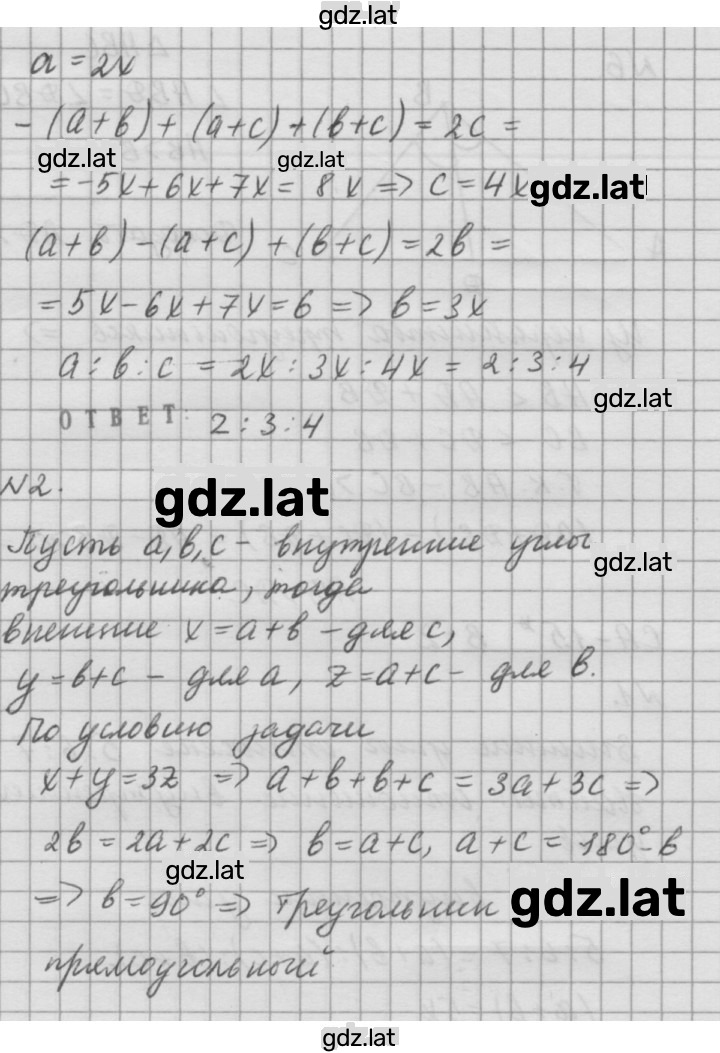 gdz.lat
a = 2x
- (a+в) + (a+c) + (в+c) = 2c =
gdz.lat gdz.lat
= -5x + 6x + 7x = 8x => c = 4x gdz.lat
(a+в) - (a+c) + (в+c) = 2в =
= 5x - 6x + 7x = 6 => в = 3x
a : в : c = 2x : 3x : 4x = 2 : 3 : 4
gdz.lat
ОТВЕТ: 2 : 3 : 4
N2.
gdz.lat
Пусть a, в, c - внутренние углы
gdz.lat
треугольника, тогда
внешние x = a+в - для c,
y = в+c - для a, z = a+c - для в.
По условию задачи
x + y = 3z => a + в + в + c = 3a + 3c =>
2в = 2a + 2c => в = a + c, a + c = 180° - в
gdz.lat
=> в = 90° => треугольник gdz.lat
прямоугольный
gdz.lat